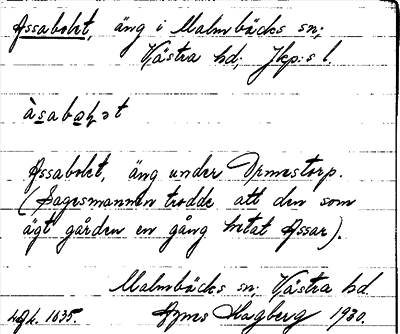 Assabohet, äng i Malmbäcks sn;
Västra hd; Jkp:s l.
àsaboh̥ət
Assabohet, äng under Ormestorp.
(Sagesmannen trodde att den som
ägt gården en gång hetat Assar).
Malmbäcks sn; Västra hd
1635. Agnes Hagberg 1930.